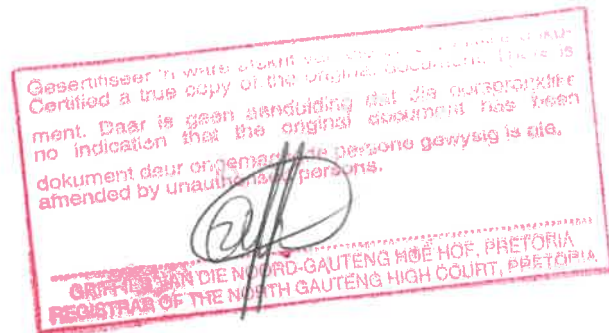 Gesertifiseer 'n ware
Certified a true copy of the original document. There is
ment. Daar is geen aanduiding dat die oorspronklike
no indication that the original document has been
dokument deur persone gewysig is nie.
amended by unauthorised persons.
GRIFFIER VAN DIE NOORD-GAUTENG HOË HOF, PRETORIA
REGISTRAR OF THE NORTH GAUTENG HIGH COURT, PRETORIA